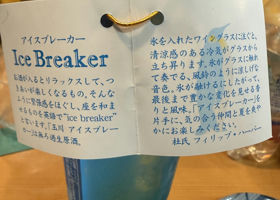 アイスブレーカー
Ice Breaker
お酒が入るとリラックスして、つ
きあいが楽しくなるもの。そんな
ように緊張感をほぐし、座を和ま
せるものを英語で“ice breaker”
といいます。「玉川 アイスブレー
カー」は無ろ過生原酒。
氷を入れたワイングラスに注ぐと、
清涼感のある冷気がグラスから
立ち昇ります。氷がグラスに触れ
て奏でる、風鈴のように涼しげな
音色。氷が融けるにしたがって、
最後まで豊かな変化を見せる香
りと風味。「アイスブレーカー」を
片手に、気の合う仲間と夏を爽や
かにお楽しみください。
杜氏 フィリップ・ハーパー